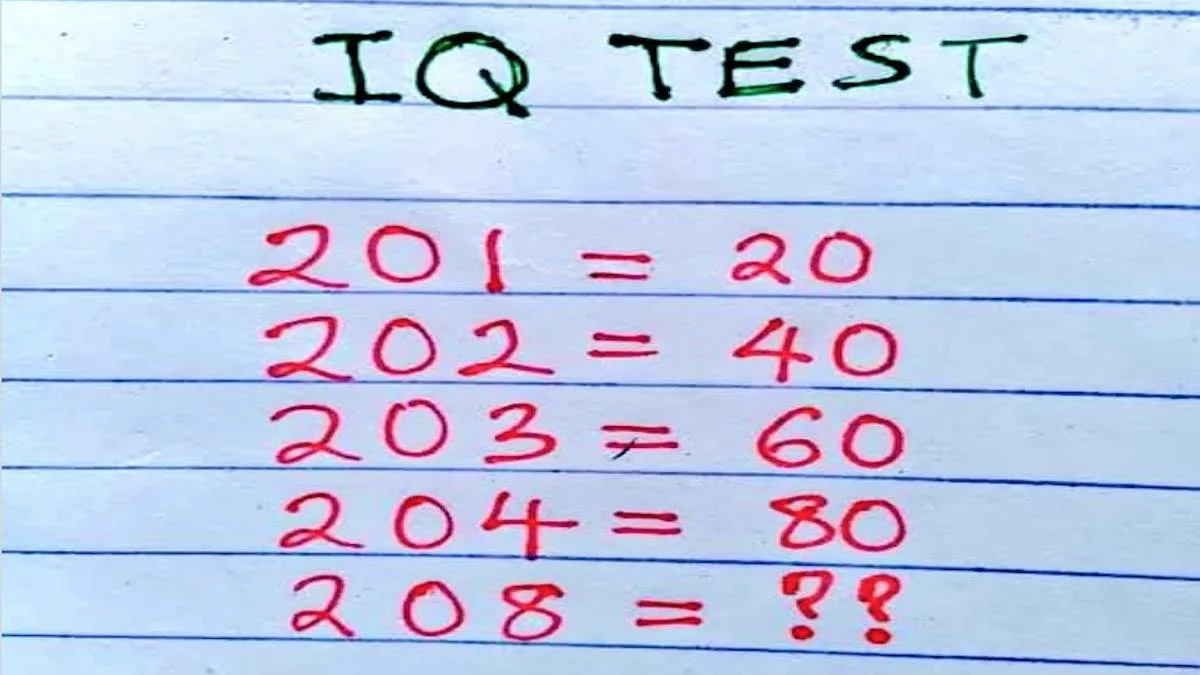 IQ TEST
201 = 20
202 = 40
203 = 60
204 = 80
208 = ??